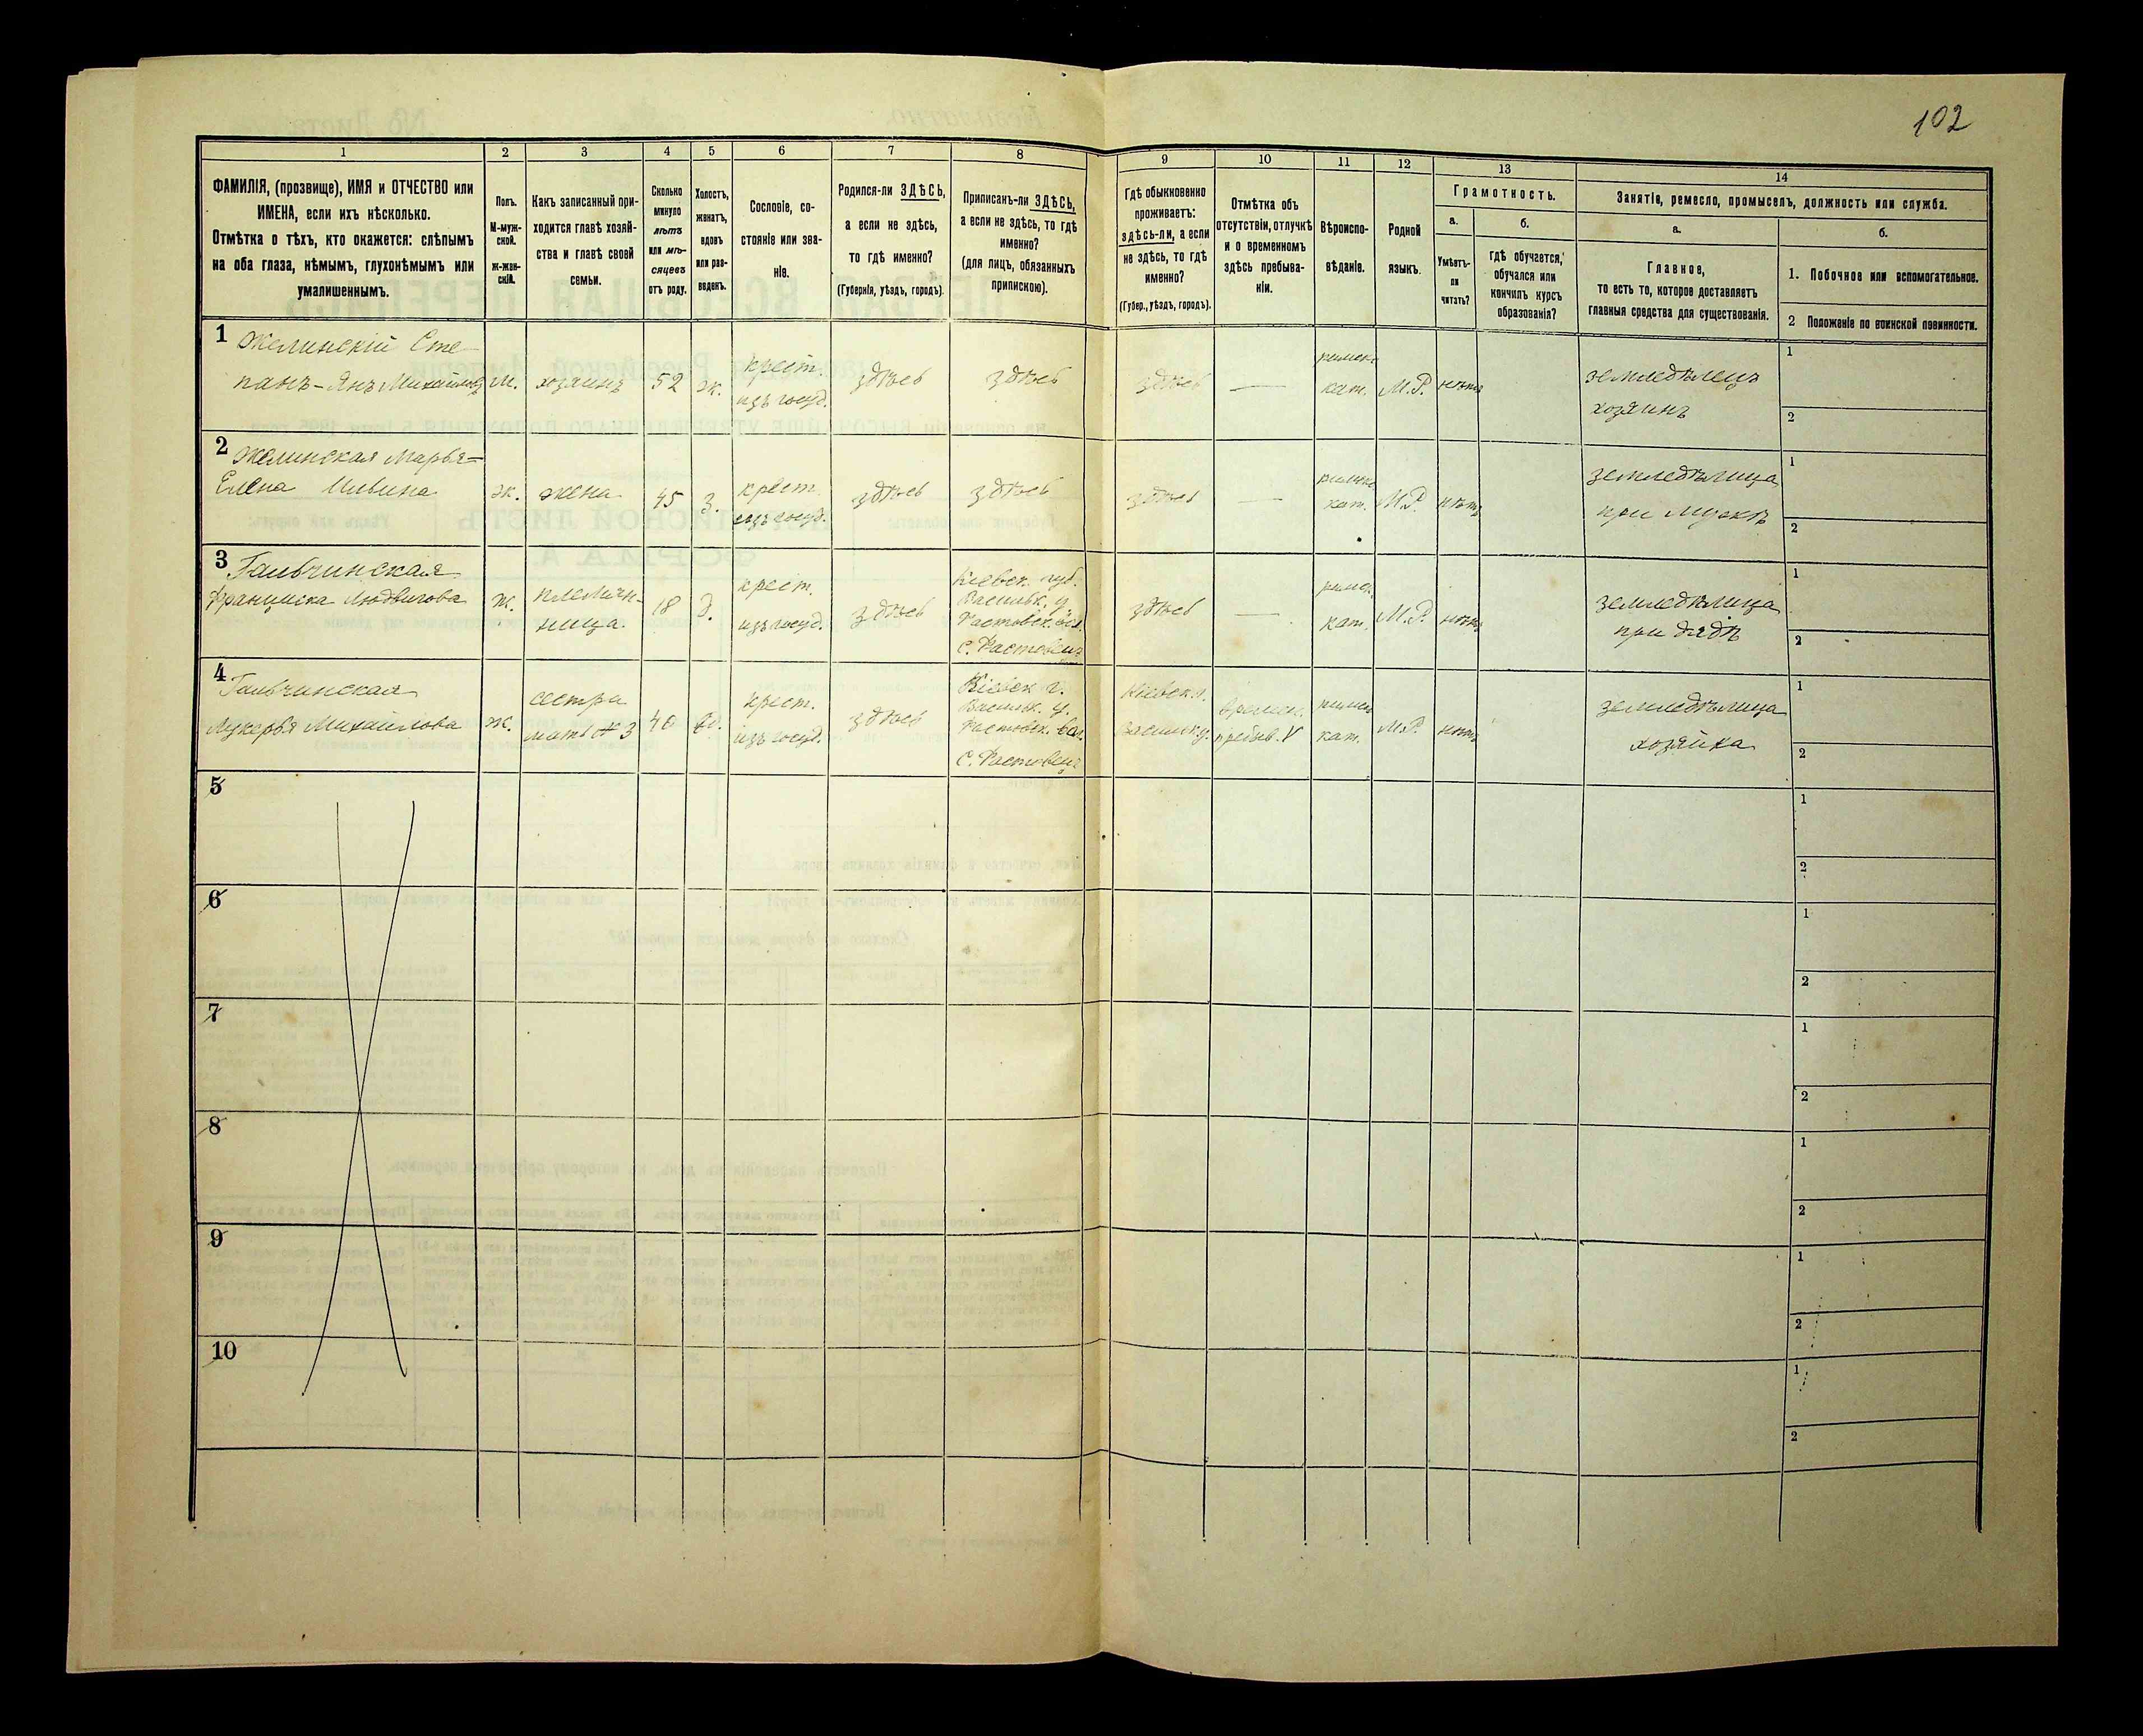 102
1 2 3 4 5 6 7 8 9 10 11 12 13 14
ФАМИЛІЯ, (прозвище), ИМЯ и ОТЧЕСТВО или
ИМЕНА, если ихъ нѣсколько.
Отмѣтка о тѣхъ, кто окажется: слѣпымъ
на оба глаза, нѣмымъ, глухонѣмымъ или
умалишеннымъ.
Полъ.
М-муж-
ской.
ж-жен-
скій.
Какъ записанный при-
ходится главѣ хозяй-
ства и главѣ своей
семьи.
Сколько
минуло
лѣтъ
или мѣ-
сяцевъ
отъ роду.
Холостъ,
женатъ,
вдовъ
или раз-
веденъ.
Сословіе, со-
стояніе или зва-
ніе.
Родился-ли ЗДѢСЬ,
а если не здѣсь,
то гдѣ именно?
(Губернія, уѣздъ, городъ).
Приписанъ-ли ЗДѢСЬ,
а если не здѣсь, то гдѣ
именно?
(для лицъ, обязанныхъ
припискою).
Гдѣ обыкновенно
проживаетъ:
здѣсь-ли, а если
не здѣсь, то гдѣ
именно?
(Губер., уѣздъ, городъ).
Отмѣтка объ
отсутствіи, отлучкѣ
и о временномъ
здѣсь пребыва-
ніи.
Вѣроиспо-
вѣданіе.
Родной
языкъ.
Грамотность.
а.
Умѣетъ-
ли
читать?
б.
гдѣ обучается,
обучался или
кончилъ курсъ
образованія?
Занятіе, ремесло, промыселъ, должность или служба.
а.
Главное,
то есть то, которое доставляетъ
главныя средства для существованія.
б.
1. Побочное или вспомогательное.
2 Положеніе по воинской повинности.
1 Желинскій Сте-
панъ-Янъ Михайловъ
м.
хозяинъ
52
ж.
крест.
изъ госуд.
здѣсь
здѣсь
здѣсь
—
римск.
кат.
М.Р.
нѣтъ
земледѣлецъ
хозяинъ
1
2
2 Желинская Марья-
Елена
ж.
жена
45
З.
крест.
изъ госуд.
здѣсь
здѣсь
здѣсь
—
римск.
кат.
М.Р.
нѣтъ
земледѣлица
при мужѣ
1
2
3 Гальчинская
Франциска Людвигова
ж.
племян-
ница.
18
д.
крест.
изъ госуд.
здѣсь
Кіевск. губ.
Васильк. у.
Растовск. вол.
с. Растовецъ
здѣсь
—
римск.
кат.
М.Р.
нѣтъ
земледѣлица
при дядѣ
1
2
4 Гальчинская
Лукерья Михайлова
ж.
сестра
мать № 3
40
вд.
крест.
изъ госуд.
здѣсь
Кіевск г.
Васильк. у.
Растовск. вол.
с. Растовецъ
Кіевск. г.
Васильк. у.
времен.
пребыв. V
римск
кат.
М.Р.
нѣтъ
земледѣлица
хозяйка
1
2
5
1
2
6
1
2
7
1
2
8
1
2
9
1
2
10
1
2